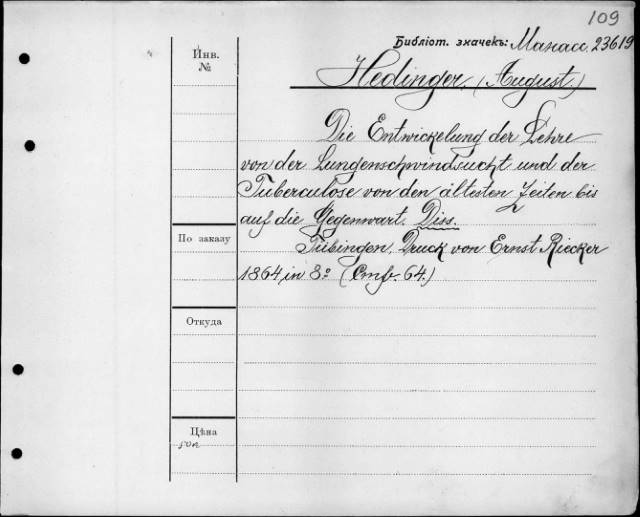 109
Библіот. значекъ: Манасс. 23619
Инв.
№
Hedinger, (August.)
Die Entwickelung der Lehre
von der Lungenschwindsucht und der
Tuberculose von den ältesten Zeiten bis
auf die Gegenwart. Diss.
По заказу
Tübingen, Druck von Ernst Riecker
1864, in 8° (Стр. 64.)
Откуда
Цѣна